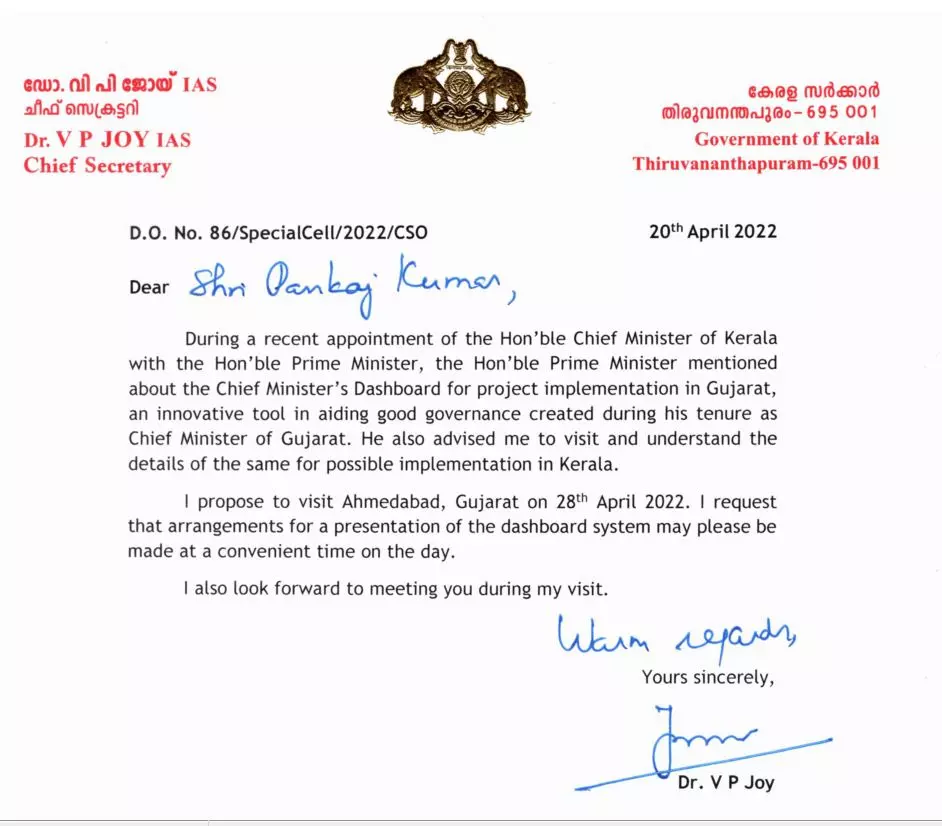 ഡോ. വി പി ജോയ് IAS
ചീഫ് സെക്രട്ടറി
Dr. V P JOY IAS
Chief Secretary
കേരള സർക്കാർ
തിരുവനന്തപുരം - 695 001
Government of Kerala
Thiruvananthapuram-695 001
D.O. No. 86/SpecialCell/2022/CSO
20th April 2022
Dear Shri Pankaj Kumar,
During a recent appointment of the Hon'ble Chief Minister of Kerala
with the Hon'ble Prime Minister, the Hon'ble Prime Minister mentioned
about the Chief Minister's Dashboard for project implementation in Gujarat,
an innovative tool in aiding good governance created during his tenure as
Chief Minister of Gujarat. He also advised me to visit and understand the
details of the same for possible implementation in Kerala.
I propose to visit Ahmedabad, Gujarat on 28th April 2022. I request
that arrangements for a presentation of the dashboard system may please be
made at a convenient time on the day.
I also look forward to meeting you during my visit.
Warm regards,
Yours sincerely,
Dr. V P Joy